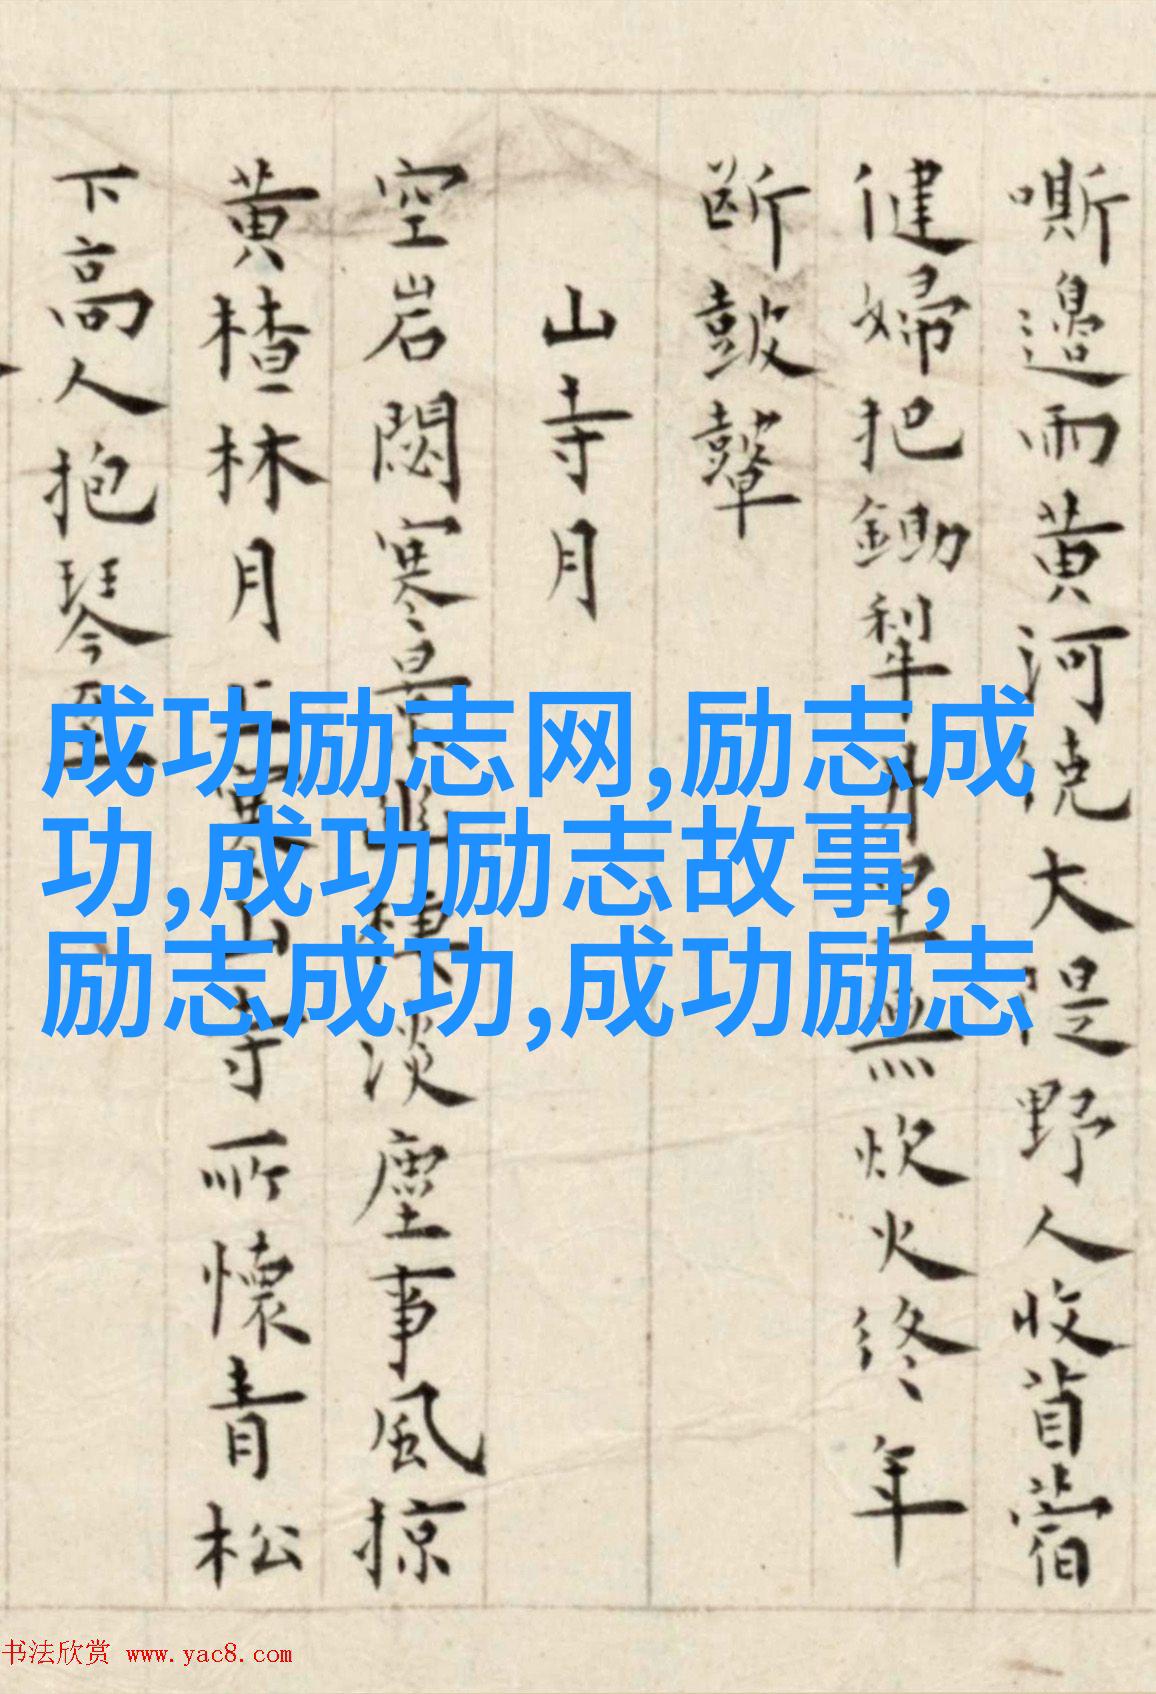 嘶邊雨黄河繞大隄野人收苜蓿
健婦把鋤犁井里無炊火終年
斷鼓鼙
山寺月
空岩閟寒景幽棲淡塵事風掠
黄楂林月上寒山寺所懷青松
下高人抱琴至
成功励志网,励志成
功,成功励志故事,
励志成功,成功励志
书法欣赏 www.yac8.com